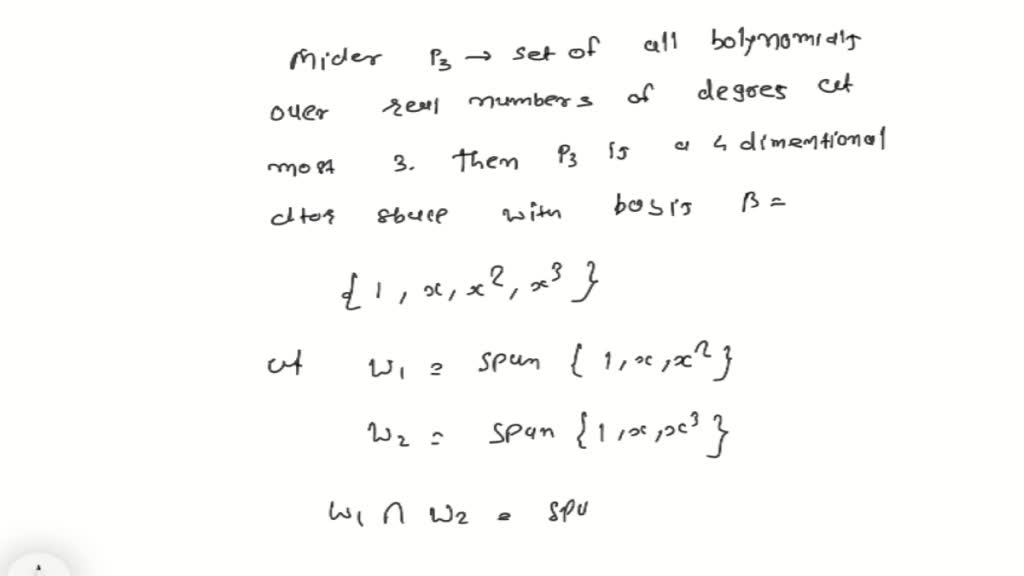 mider P₃ → set of all bolynomials
over real numbers of degres at
most 3. then P₃ is a 4 dimentional
ctor space with basis β =
{ 1 , x , x² , x³ }
et W₁ = span { 1 , x , x² }
W₂ = span { 1 , x , x³ }
W₁ ∩ W₂ = spa